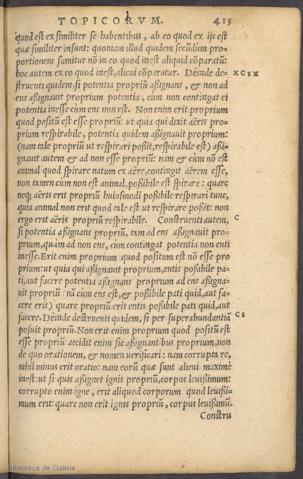 TOPICORVM. 415
quod est ex similiter se habentibus, ab eo quod ex ijs est
quæ similiter insunt: quoniam illud quidem secũdum pro-
portionem sumitur nõ in eo quod inest aliquid cõparatũ:
hoc autem ex eo quod inest, alicui cõparatur. Deinde de- XCIX
struenti quidem, si potentia propriũ aßignans, & non ad
ens aßignauit proprium potentia, cum non contingat ei
potentia inesse cum ens non est. Non enim erit proprium
quod positũ est esse propriũ: ut quia qui dixit aëris pro-
prium respirabile, potentia quidem aßignauit proprium:
(nam tale propriũ ut respirari poßit, respirabile est) aßi-
gnauit autem & ad non esse propriũ: nam & cum nõ est
animal quod spirare natum ex aëre, contingit aërem esse,
non tamen cum non est animal, poßibile est spirare: quare
neq; aëris erit propriũ huiusmodi poßibile respirari tunc,
quia animal non erit quod tale est ut respirare poßit: non
ergo erit aëris propriũ respirabile. Construenti autem, C
si potentia aßignans propriũ, tam ad ens aßignauit pro-
prium, quàm ad non ens, cum contingat potentia non enti
inesse. Erit enim proprium quod positum est nõ esse pro
prium: ut quia qui aßignauit proprium, entis poßibile pa-
ti, aut facere potentia aßignans proprium ad ens aßigna-
uit propriũ: nã cum ens est, & poßibile pati quid, aut fa-
cere erit) quare propriũ erit entis poßibile pati quid, aut
facere. Deinde destruenti quidem, si per superabundantiã CI
posuit propriũ. Non erit enim proprium quod positũ est
esse propriũ: accidit enim sic aßignantibus proprium, non
de quo orationem, & nomen uerificari: nam corrupta re,
nihil minus erit oratio: nam eorũ quæ sunt alicui maximè
inest: ut si quis aßignet ignis propriũ, corpus leuißimum:
corrupto enim igne, erit aliquod corporum quod leuißi-
mum erit: quare non erit ignis propriũ, corpus leuißimũ.
Constru
Biblioteca de Galicia